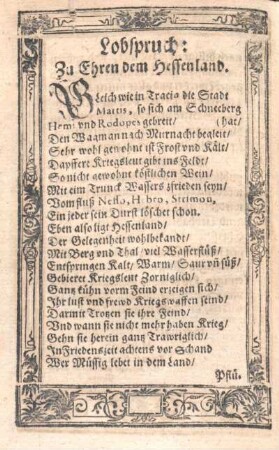 Lobspruch:
Zu Ehren dem Hessenland.
Gleich wie in Tracia die Stadt
Martis, so sich am Schneeberg
Hemi vnd Rodopes gebreit/ (hat/
Den Waaman nach Murnacht begleit/
Sehr wohl gewohnt ist Frost vnd Kält/
Dapffere Kriegsleut gibt ins Feldt/
So nicht gewohnt köstlichen Wein/
Mit eim Trunck Wassers zfrieden seyn/
Vom fluß Nesso, Hebro, Strimon,
Ein jeder sein Durst löschet schon.
Eben also ligt Hessenland/
Der Gelegenheit wohlbekandt/
Mit Berg vnd Thal/ viel Wasserflüß/
Entspringen Kalt/ Warm/ Saur vñ süß/
Gebieret Kriegsleut Zorniglich/
Gantz kühn vorm Feind erzeigen sich/
Ihr lust vnd frewd Kriegswaffen seind/
Darmit Trotzen sie ihre Feind/
Vnd wann sie nicht mehr haben Krieg/
Gehn sie herein gantz Trawriglich/
In Friedenszeit achtens vor Schand
Wer Müssig lebet in dem Land/
Pfiũ.